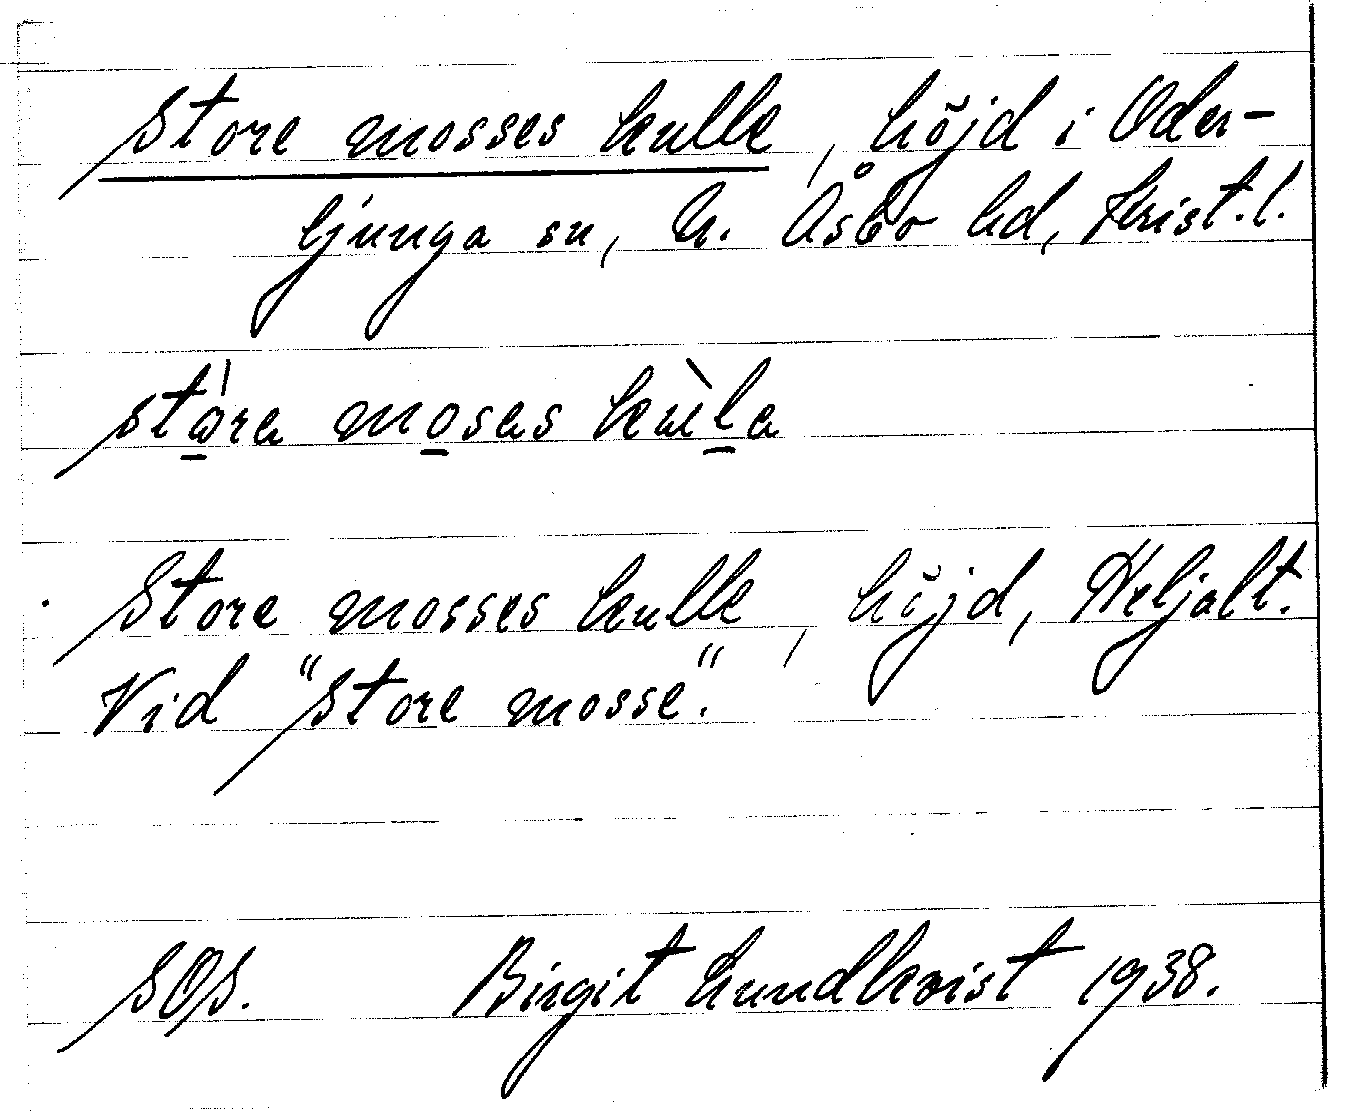 Store mosses kulle, höjd i Oder-
ljunga sn, N. Åsbo hd, Krist. l.
stora mosas kula
Store mosses kulle, höjd, Heljalt.
Vid "Store mosse".
SOS. Birgit Lundkvist 1938.